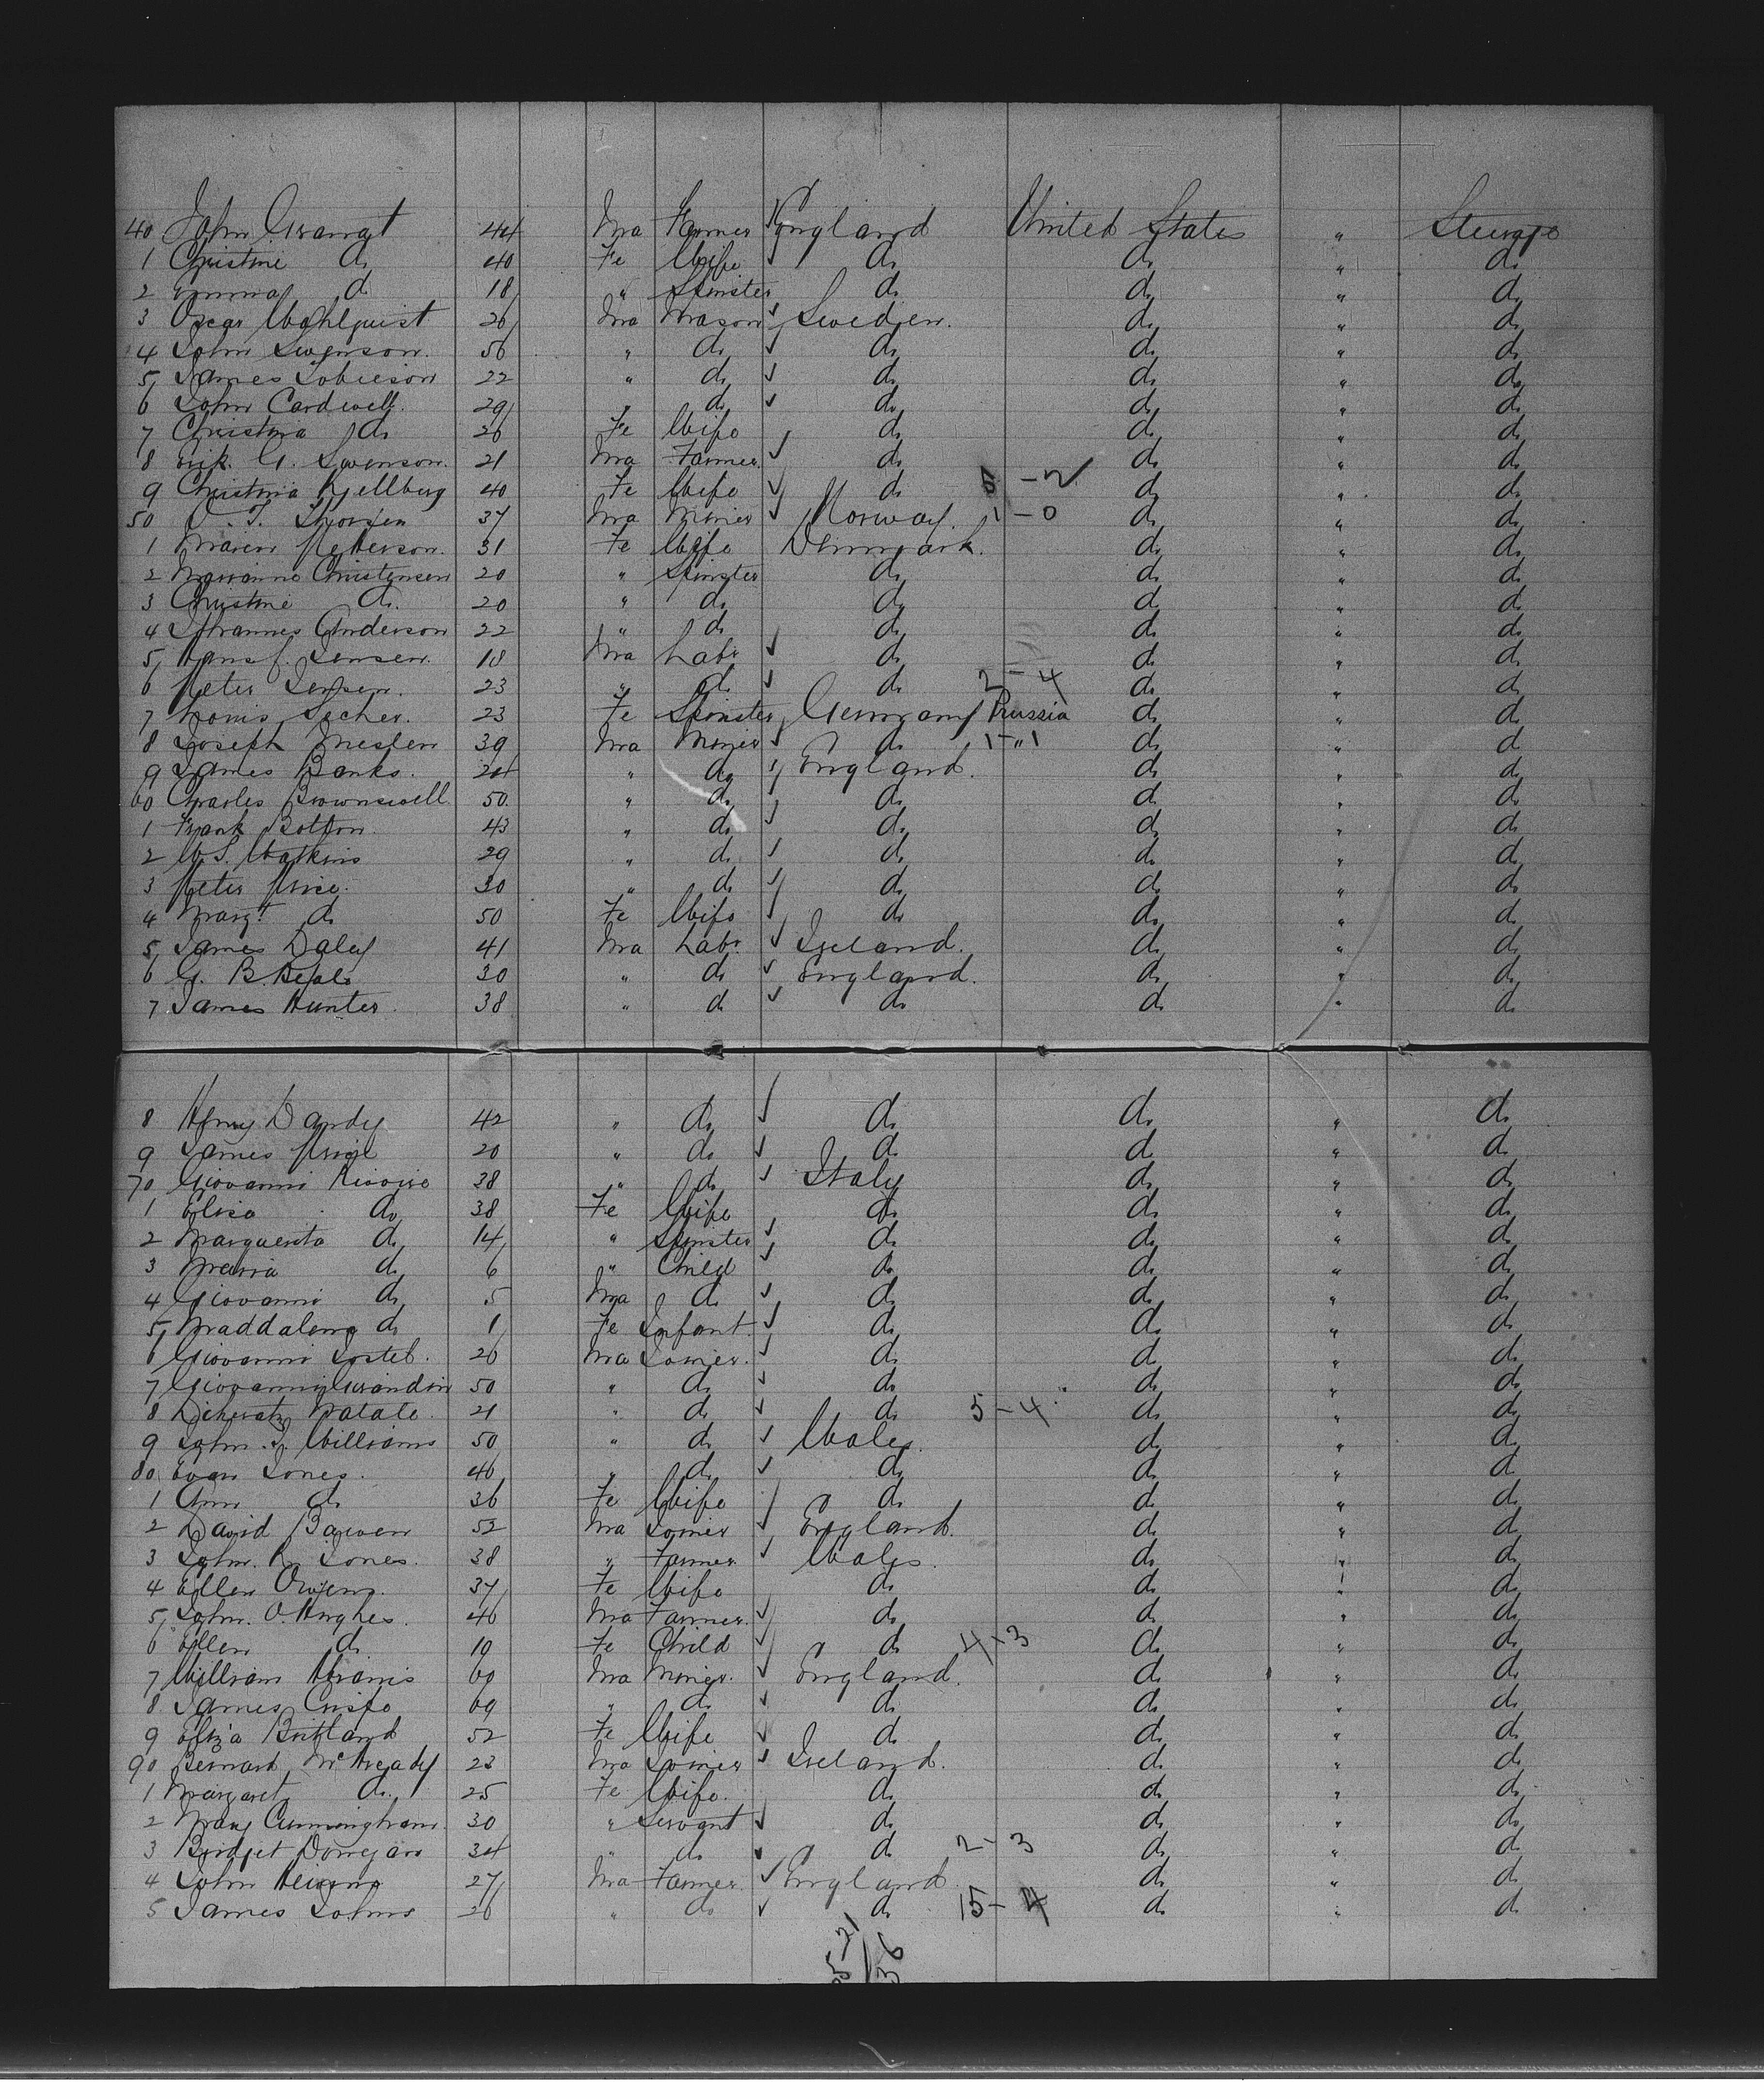 40 John Grangt 44 Ma Farmer England United States " Steerage
1 Christine do 40 Fe Wife do do " do
2 Emma do 18 " Spinster do do " do
3 Oscar Wahlquist 26 Ma Mason Sweden. do " do
4 John Swenson. 56 " do do do " do
5 James Tobieson 22 " do do do " do
6 John Cardwell. 29 " do do do " do
7 Christina do 26 Fe Wife do do " do
8 Erik. G. Swenson. 21 Ma Farmer. do do " do
9 Christina Kjellberg 40 Fe Wife do - 2 do " do
50 37 Ma Miner Norway. 1 - 0 do " do
1 Maren Petterson. 31 Fe Wife Denmark. do " do
2 Marianne Christensen 20 " Spinster do do " do
3 Christine do. 20 " do do do " do
4 Johannes Anderson 22 " do do do " do
5 Hans J. Jensen. 18 Ma Labr do do " do
6 Peter Jensen. 23 " do do 2 - 4 do " do
7 Louis Locher. 23 Fe Spinster Germany Prussia do " do
8 Joseph Meslen 39 Ma Miner do 1 - "1 do " do
9 James Banks. 24 " do England. do " do
60 Charles Brownswell 50. " do do do " do
1 Frank Bolton. 43 " do do. do " do
2 W. S. Watkins 29 " do do do " do
3 Peter Price. 30 " do do do " do
4 Margt. do 50 Fe Wife do do " do
5 James Daley 41 Ma Labr. Ireland. do " do
6 G. B. 30 " do England. do " do
7 James Hunter. 38 " do do do " do
8 Henry Dandy 42 " do do do " do
9 James 20 " do do do " do
70 Giovanni Rivoiro 38 " do Italy do " do
1 Elisa do 38 Fe Wife do do " do
2 Marguerita do 14 " Spinster do do " do
3 Maria do 6 " Child do do " do
4 Giovanni do 5 Ma do do do " do
5 Maddalena do 1 Fe Infant. do do " do
6 Giovanni Costel. 26 Ma Joiner. do do " do
7 Giovanni Girandin 50 " do do do " do
8 Natale 21 " do do 5 - 4 do " do
9 John. J. Williams 50 " do Wales. do " do
80 Evan Jones. 46 " do do do " do
1 Ann do 36 Fe Wife do do " do
2 David Bowen 52 Ma Joiner England. do " do
3 John. R. Jones. 38 " Farmer. Wales. do " do
4 Ellen Owens. 37 Fe Wife do do " do
5 John. O. Hughes. 46 Ma Farmer. do do " do
6 Ellen do 10 Fe Child do 4 - 3 do " do
7 William Harris 60 Ma Miner. England. do " do
8 James Crispo 69 " do do do " do
9 Eliza Brittland 52 Fe Wife do do " do
90 Bernard McAready 23 Ma Joiner Ireland. do " do
1 Margaret do. 25 Fe Wife. do do " do
2 Mary Cunningham. 30 " Servant do do " do
3 Bridget Donegan 34 " do do 2 - 3 do " do
4 John 27 Ma Farmer. England. do " do
5 James Johns 26 " do do 15 - 4 do " do
- 21
36